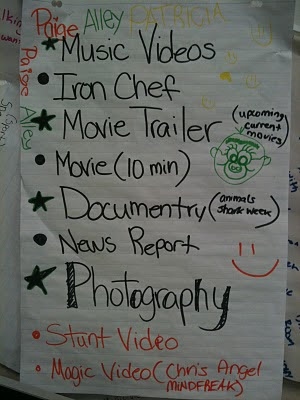 Paige Alley PATRICIA
Paige
Alley
Music Videos
Iron Chef
Movie Trailer (upcoming
current
movies)
Movie (10 min)
Documentry (animals
shark week)
News Report
Photography
Stunt Video
Magic Video (Chris Angel
MINDFREAK)